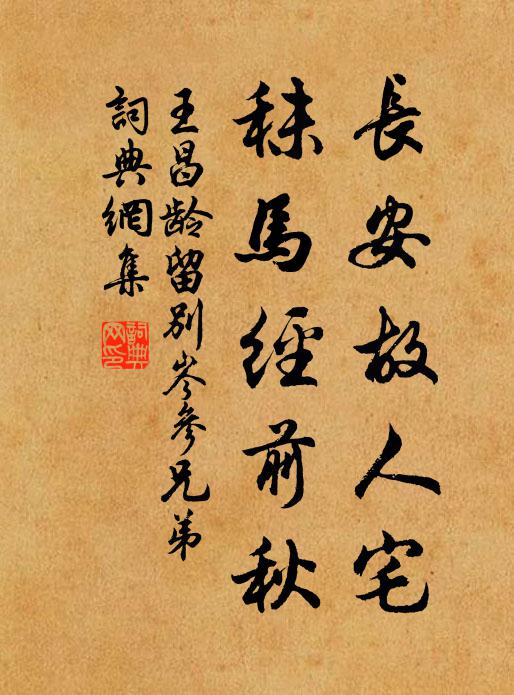 長安故人宅
秣馬經前秋
王昌齡留別岑參兄弟
詞典網集
詞典网印